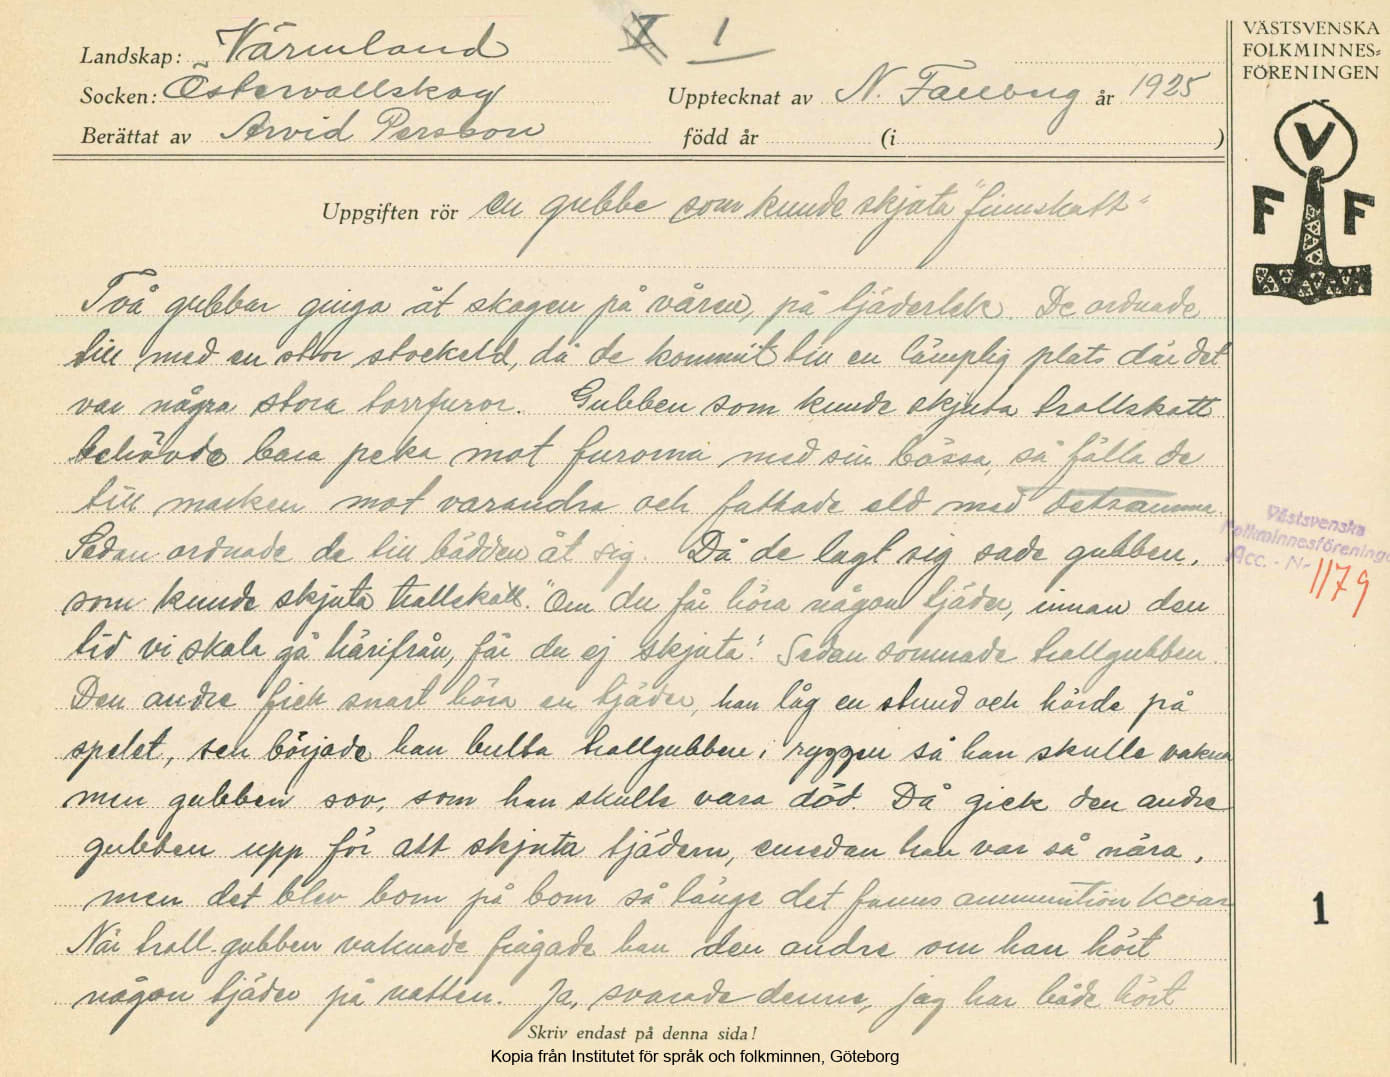 1
Landskap: Värmland
Socken: Östervallskog
Upptecknat av N. Fanberg år 1925
Berättat av Arvid Persson
född år (i )
Uppgiften rör en gubbe som kunde skjuta "finnskott"
Två gubbar ginga åt skogen på våren, på tjäderlek. De ordnade
till med en stor stockeld, då de kommit till en lämplig plats där det
var några stora torrfuror. Gubben som kunde skjuta trollskott
behövde bara peka mot furorna med sin bössa, så fälla de
till marken mot varandra och fattade eld med detsamma.
Sedan ordnade de till bädden åt sig. Då de lagt sig sade gubben,
som kunde skjuta trollskott. "Om du får höra någon tjäder, innan den
tid vi skola gå härifrån, får du ej skjuta". Sedan somnade trollgubben.
Den andre fick snart höra en tjäder, han låg en stund och hörde på
spelet, sen började han bulta trollgubben i ryggen så han skulle vakna
men gubben sov, som han skulle vara död. Då gick den andre
gubben upp för att skjuta tjädern, emedan han var så nära,
men det blev bom på bom så länge det fanns ammunition kvar
När troll-gubben vaknade frågade han den andre om han hört
någon tjäder på natten. Ja, svarade denne, jag har både hört
Skriv endast på denna sida!
Kopia från Institutet för språk och folkminnen, Göteborg
VÄSTSVENSKA
FOLKMINNES=
FÖRENINGEN
V
F F
Västsvenska
Folkminnesföreningen
Acc. - N- 1179
1